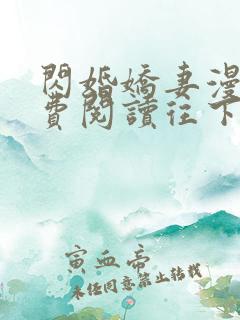 閃婚嬌妻漫
費閱讀往下
寅血帝
未经同意禁止转载